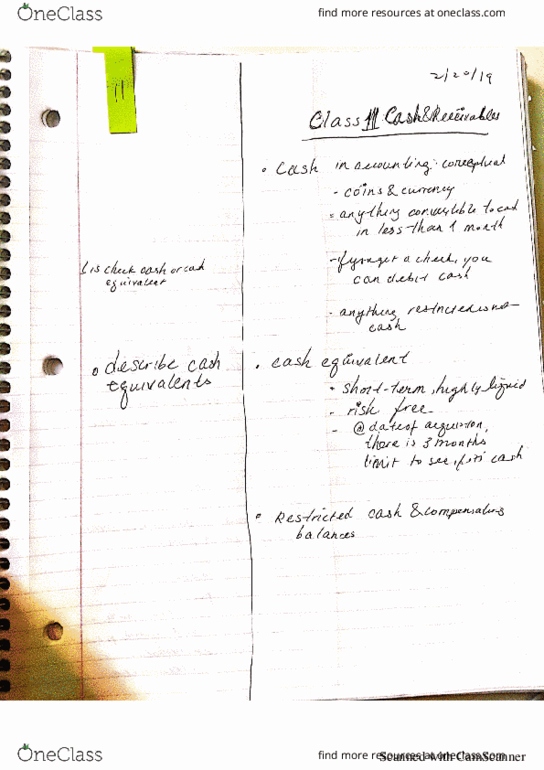 OneClass
find more resources at oneclass.com
11
2/20/19
Class 11 Cash & Receivables
• Cash in accounting: conceptual
- coins & currency
- anything convertible to cash
in less than 1 month
- if you get a check, you
can debit cash
- anything restricted is not
cash
is check cash or cash
equivalent
o describe cash
equivalents
• cash equivalent
- short-term, highly liquid
- risk free
- @ date of acquisition,
there is 3 months
limit to see if its cash
• Restricted cash & compensating
balances
OneClass
find more resources at oneclass.com
Scanned with CamScanner